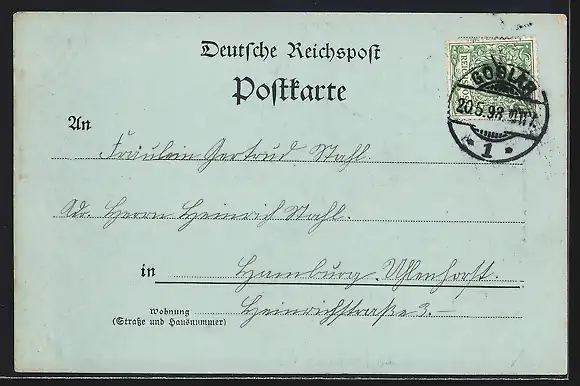 Deutsche Reichspost
Postkarte
GOSLAR
20.5.98.
* 1 *
An
Fräulein Gertrud Stahl.
Adr. Herrn Heinrich Stahl.
in Hamburg. Uhlenhorst.
Wohnung
(Straße und Hausnummer)
Heinrichstraße 3.–